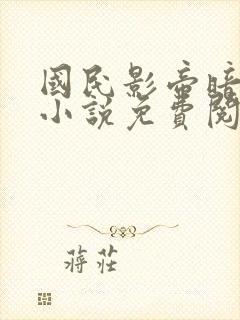 國民影帝暗
小說免費閱
蔣莊